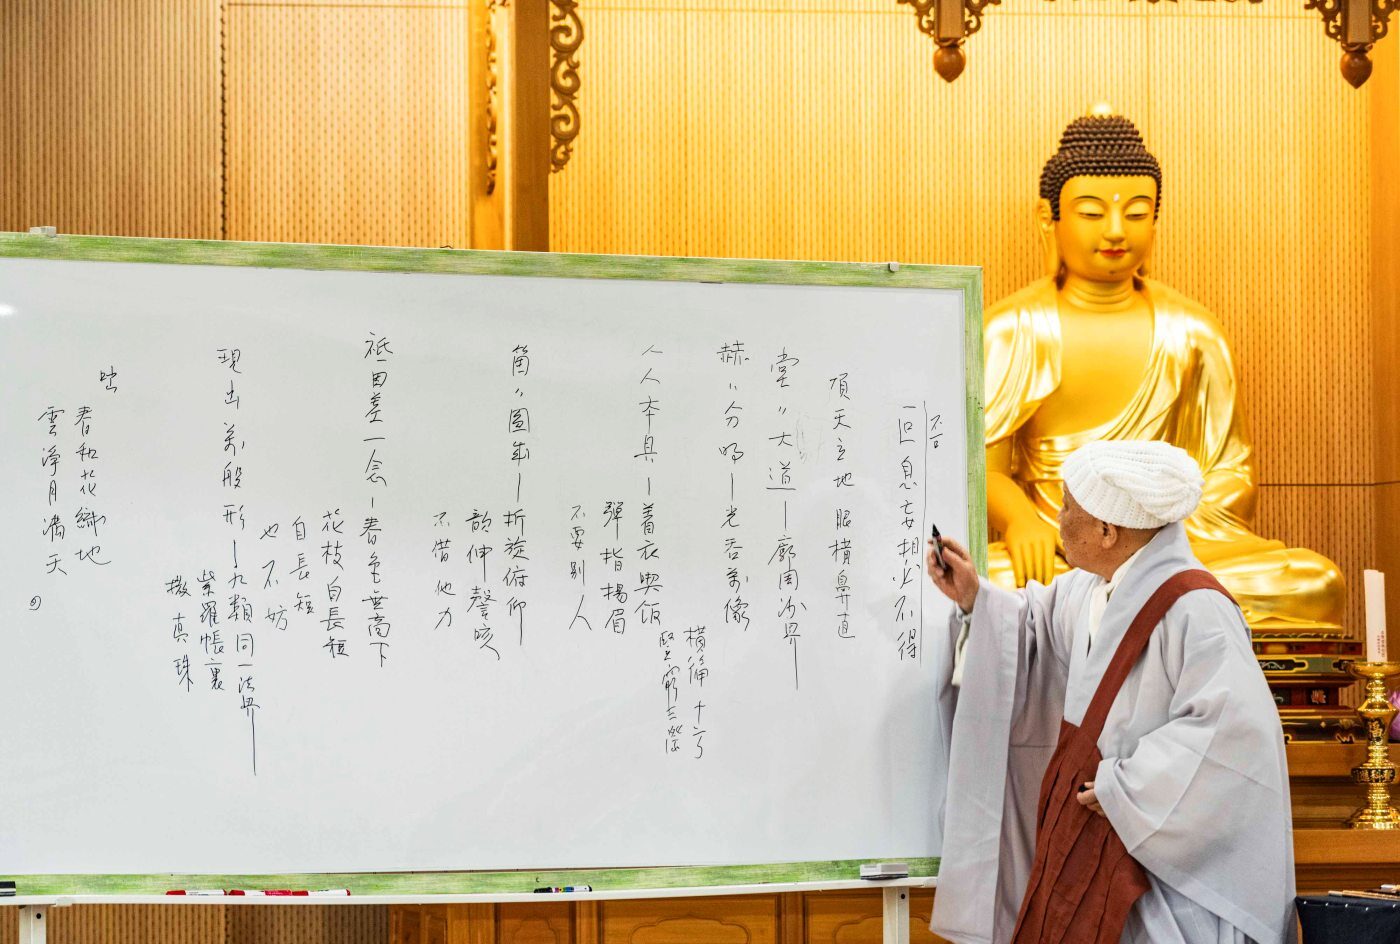 叵息妄想必不得
頂天立地 眼橫鼻直
堂〃大道—廓周沙界
赫〃分明—光吞萬像
橫徧十方
竪窮三際
人人本具—着衣喫飯
彈指揚眉
不要別人
箇〃圓成—折旋俯仰
伸謦咳
不借他力
祗因差一念—春色無高下
花枝自長短
自長短
也不妨
現出萬般形—九類同一法界
紫羅帳裏
撒真珠
咄
春和花織地
雲淨月滿天